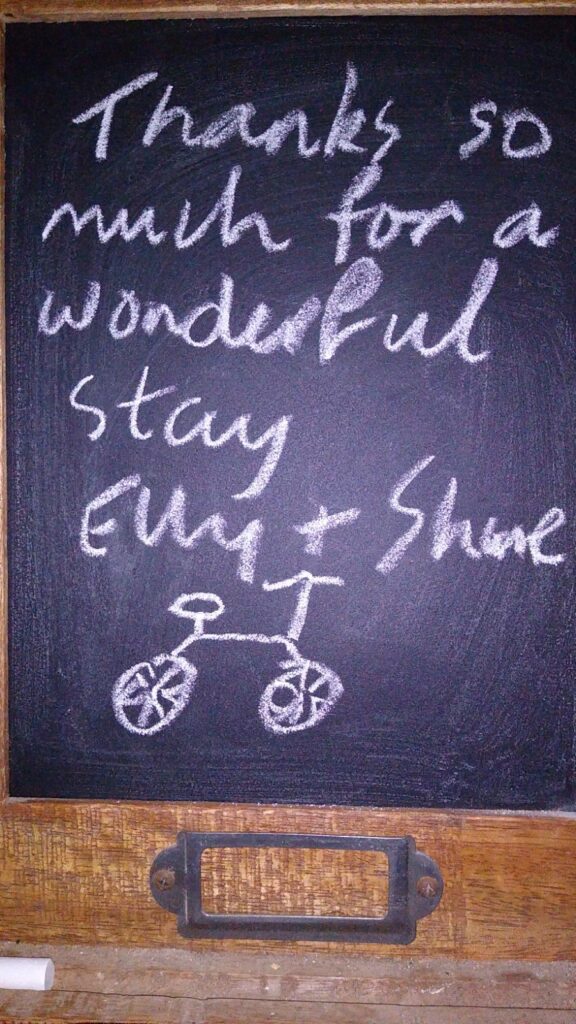 Thanks so
much for a
wonderful
stay
Elly + Shane